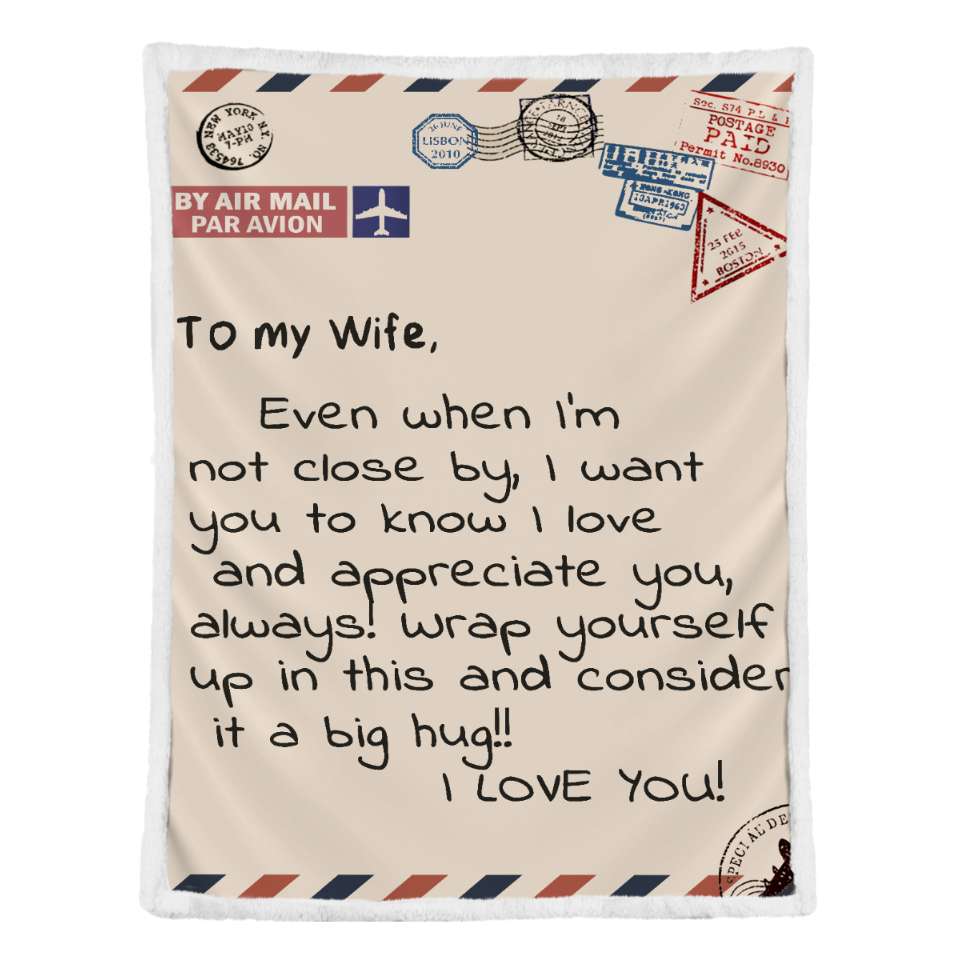 NEW YORK N.Y.
MAY10
7-PM
NO. 764533
26 JUNE
LISBON
2010
Soc. 574 P.L & R
POSTAGE
PAID
Permit No.8930
HONG-KONG
13APR1963
25 FEB
2015
BOSTON
BY AIR MAIL
PAR AVION
To my Wife,
Even when I'm
not close by, I want
you to know I love
and appreciate you,
always! Wrap yourself
up in this and consider
it a big hug!!
I LOVE YOU!
SPECIAL DE